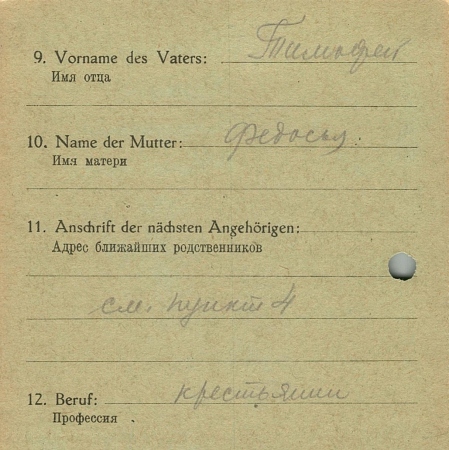 9. Vorname des Vaters: Тимофей
Имя отца
10. Name der Mutter: Федосья
Имя матери
11. Anschrift der nächsten Angehörigen:
Адрес ближайших родственников
см. пункт 4
12. Beruf: крестьянин
Профессия